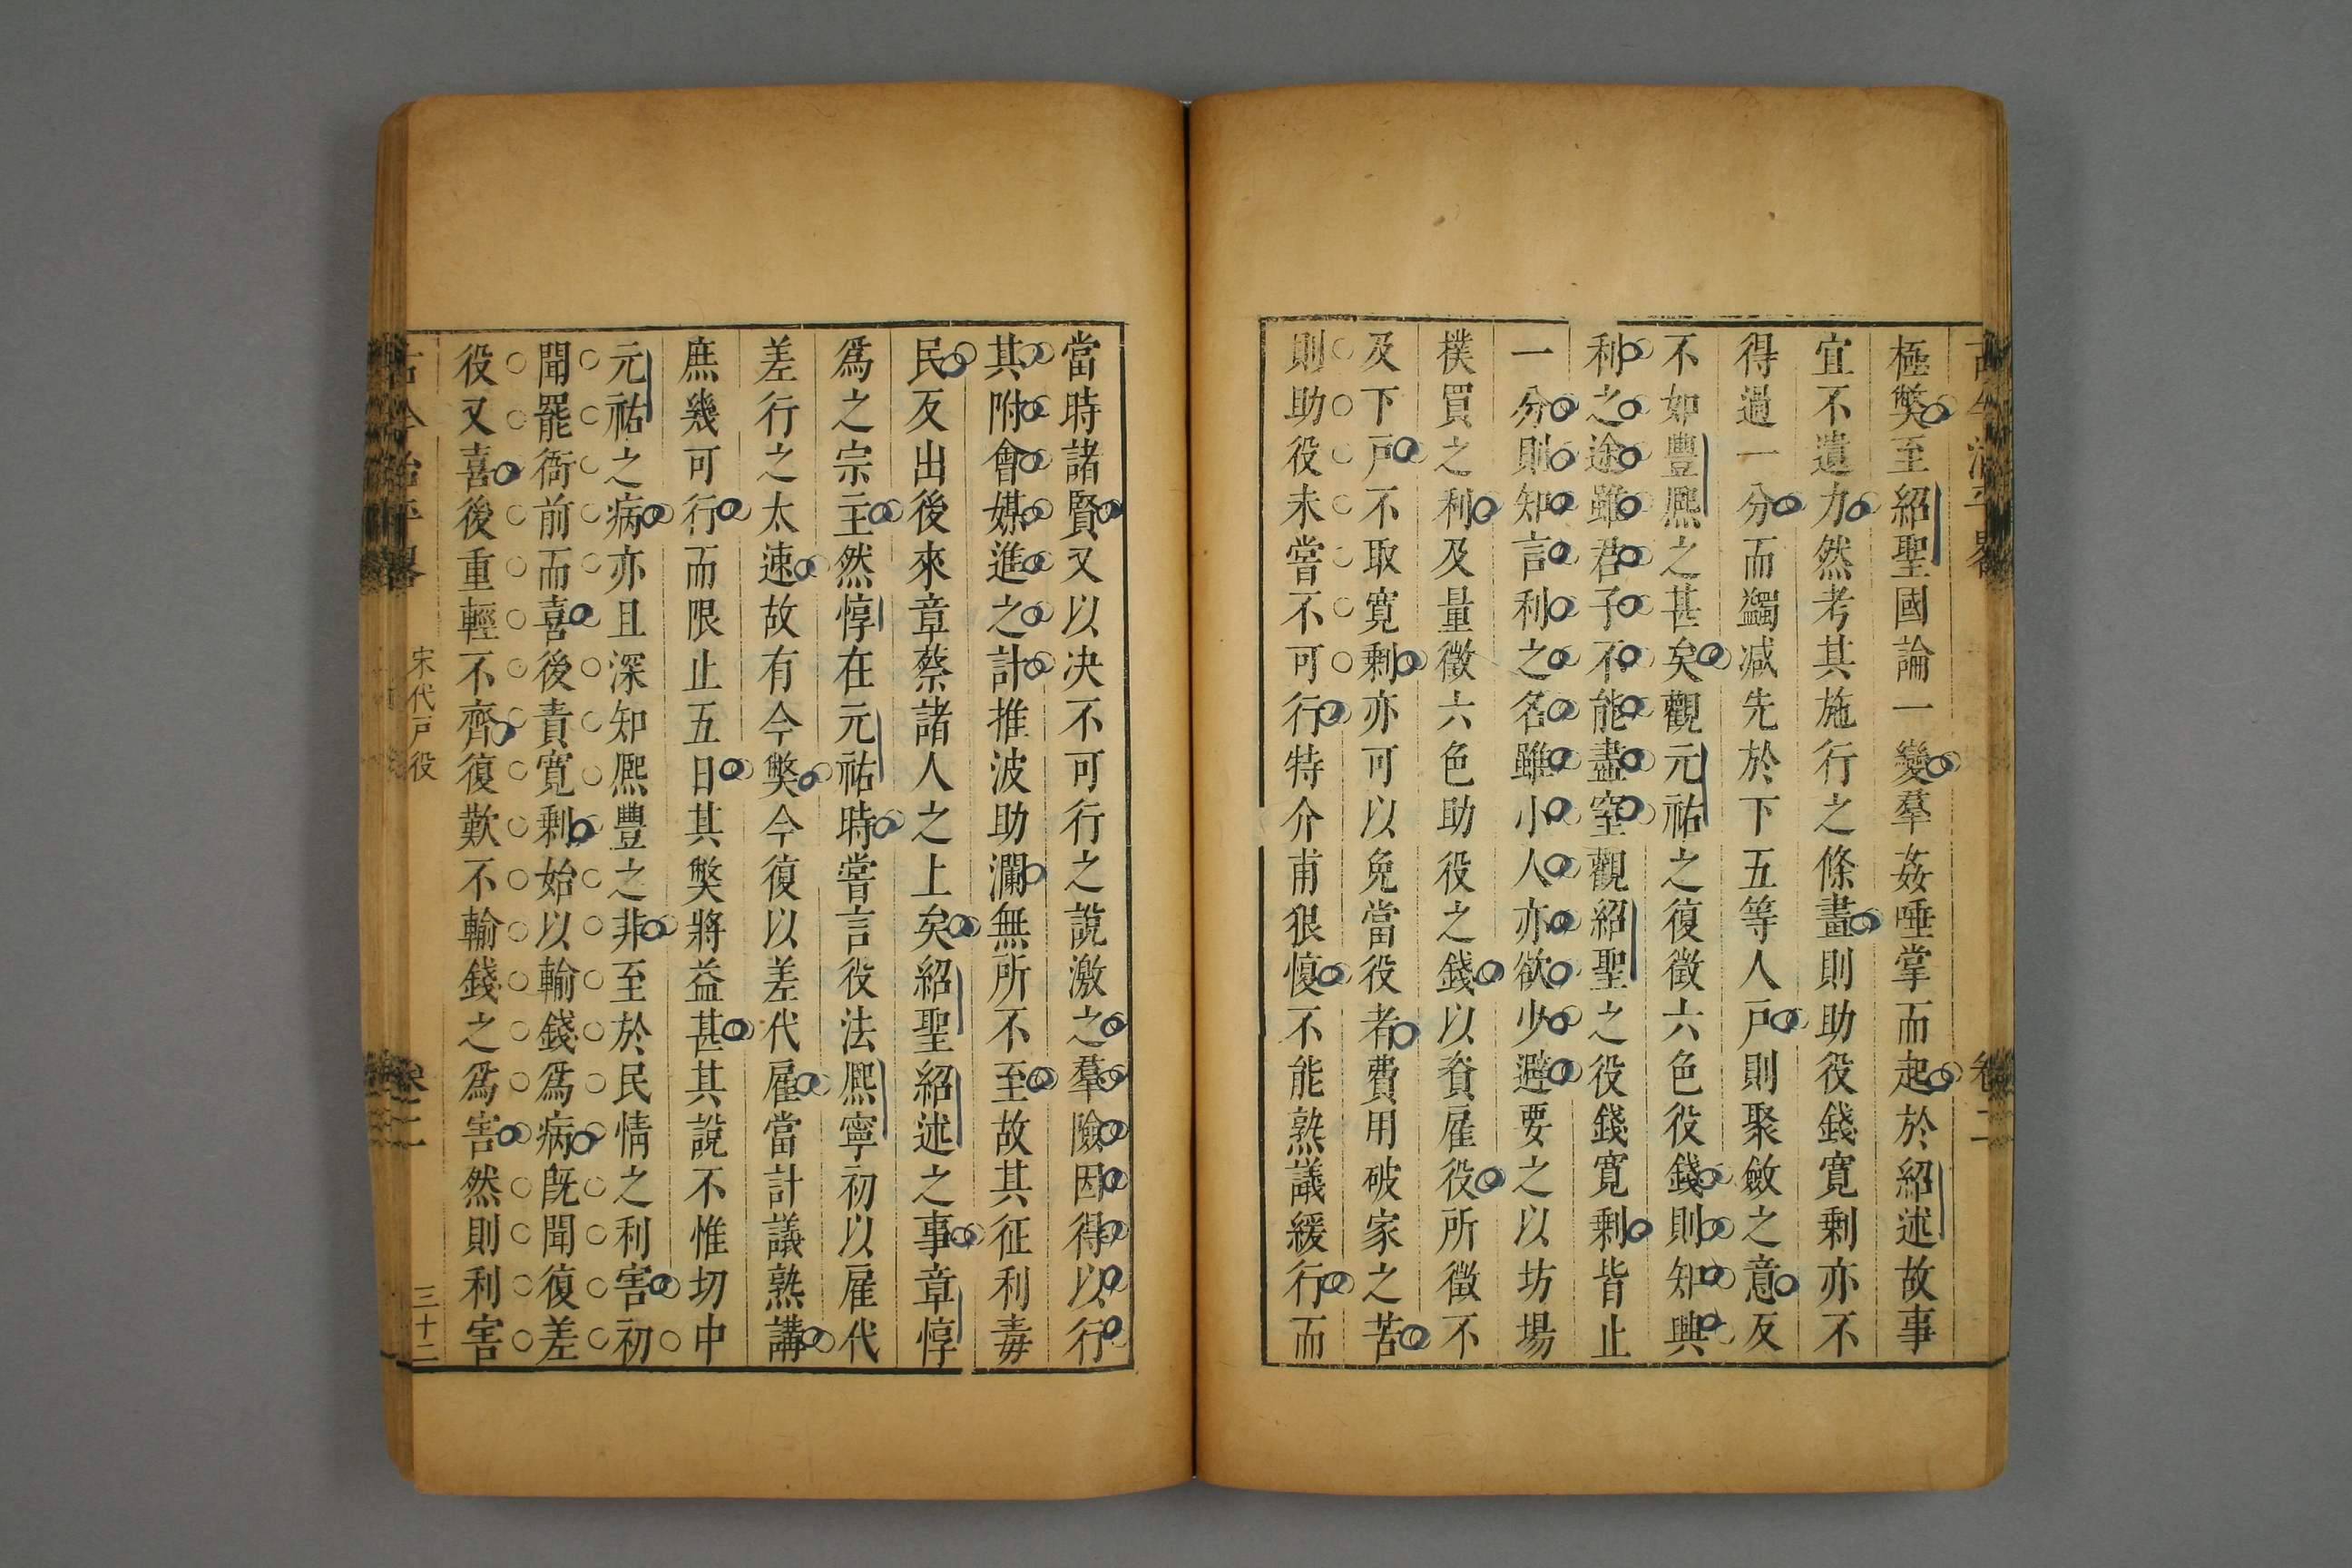 極弊至紹聖國論一變羣姦唾掌而起於紹述故事
宜不遺力然考其施行之條畫則助役錢寬剩亦不
得過一分而蠲减先於下五等人戶則聚斂之意反
不如豐熙之甚矣觀元祐之復徵六色役錢則知興
利之途雖君子不能盡窒觀紹聖之役錢寬剩皆止
一分則知言利之名雖小人亦欲少避要之以坊場
撲買之利及量徵六色助役之錢以資雇役所徵不
及下戶不取寬剩亦可以免當役者費用破家之苦
則助役未嘗不可行特介甫狠愎不能熟議緩行而
當時諸賢又以决不可行之說激之羣險因得以行
其附會媒進之計推波助瀾無所不至故其征利毒
民反出後來章蔡諸人之上矣紹聖紹述之事章惇
爲之宗主然惇在元祐時嘗言役法熈寧初以雇代
差行之太速故有今弊今復以差代雇當計議熟講
庶幾可行而限止五日其弊將益甚其說不惟切中
元祐之病亦且深知熈豐之非至於民情之利害初
聞罷衙前而喜後責寬剩始以輸錢爲病旣聞復差
役又喜後重輕不齊復歎不輸錢之爲害然則利害
古今治平畧
宋代戶役
卷二
三十二